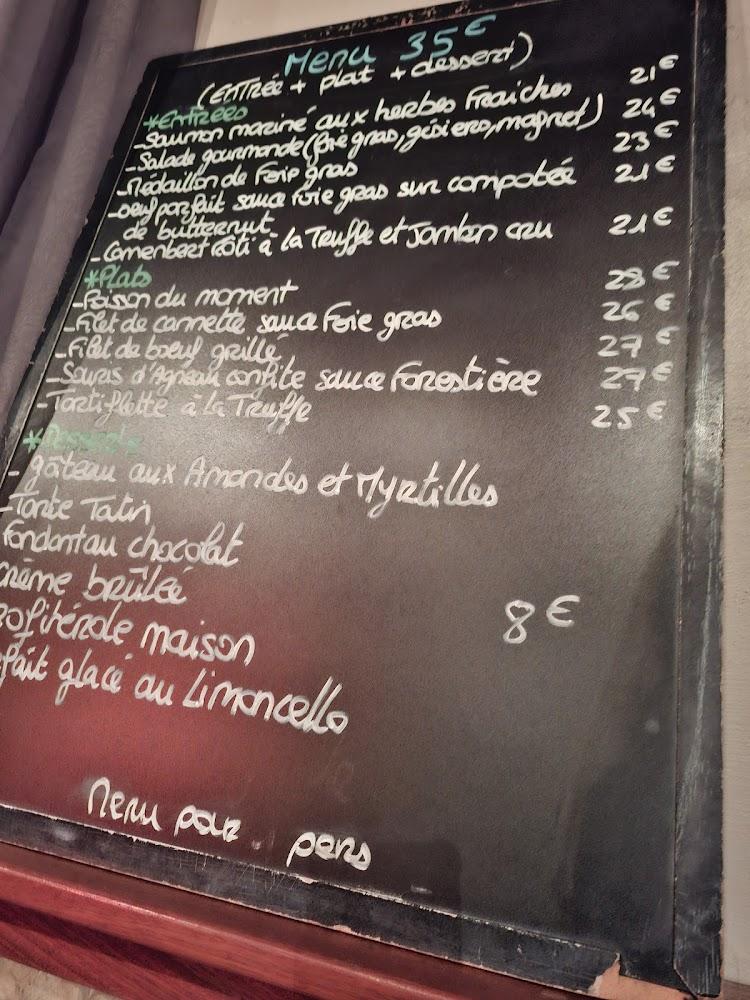 Menu 35€
(Entrée + plat + dessert)
*Entrées
-Saumon mariné aux herbes Fraiches 21€
-Salade gourmande (foie gras, gésiers, magret) 24€
-Médaillon de Foie gras 23€
-oeuf parfait sauce foie gras sur compotée 21€
de butternut
-Camenbert rôti à la Truffe et Jambon cru 21€
*Plats
-Poison du moment 28€
-Filet de cannette sauce Foie gras 26€
-Filet de boeuf grillé 27€
-Souris d'Agneau confite sauce Forestière 27€
-Tartiflette à la Truffe 25€
*Desserts
- gâteau aux Amandes et Myrtilles
-Tarte Tatin
Fondant au chocolat
crème brûlée
8€
rofitérole maison
fait glacé au Limoncello
Menu pour pers